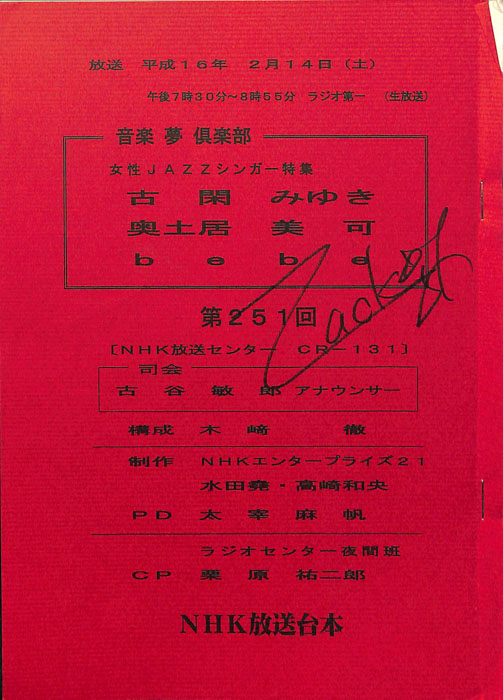 放送 平成16年 2月14日(土)
午後7時30分~8時55分 ラジオ第一 (生放送)
音楽 夢 倶楽部
女性JAZZシンガー特集
古閑 みゆき
奥土居 美可
bebe
第251回
[NHK放送センター CR-131]
司会
古谷 敏郎 アナウンサー
構成 木﨑 徹
制作 NHKエンタープライズ21
水田堯・高崎和央
PD 太宰麻帆
ラジオセンター夜間班
CP 栗原 祐二郎
NHK放送台本